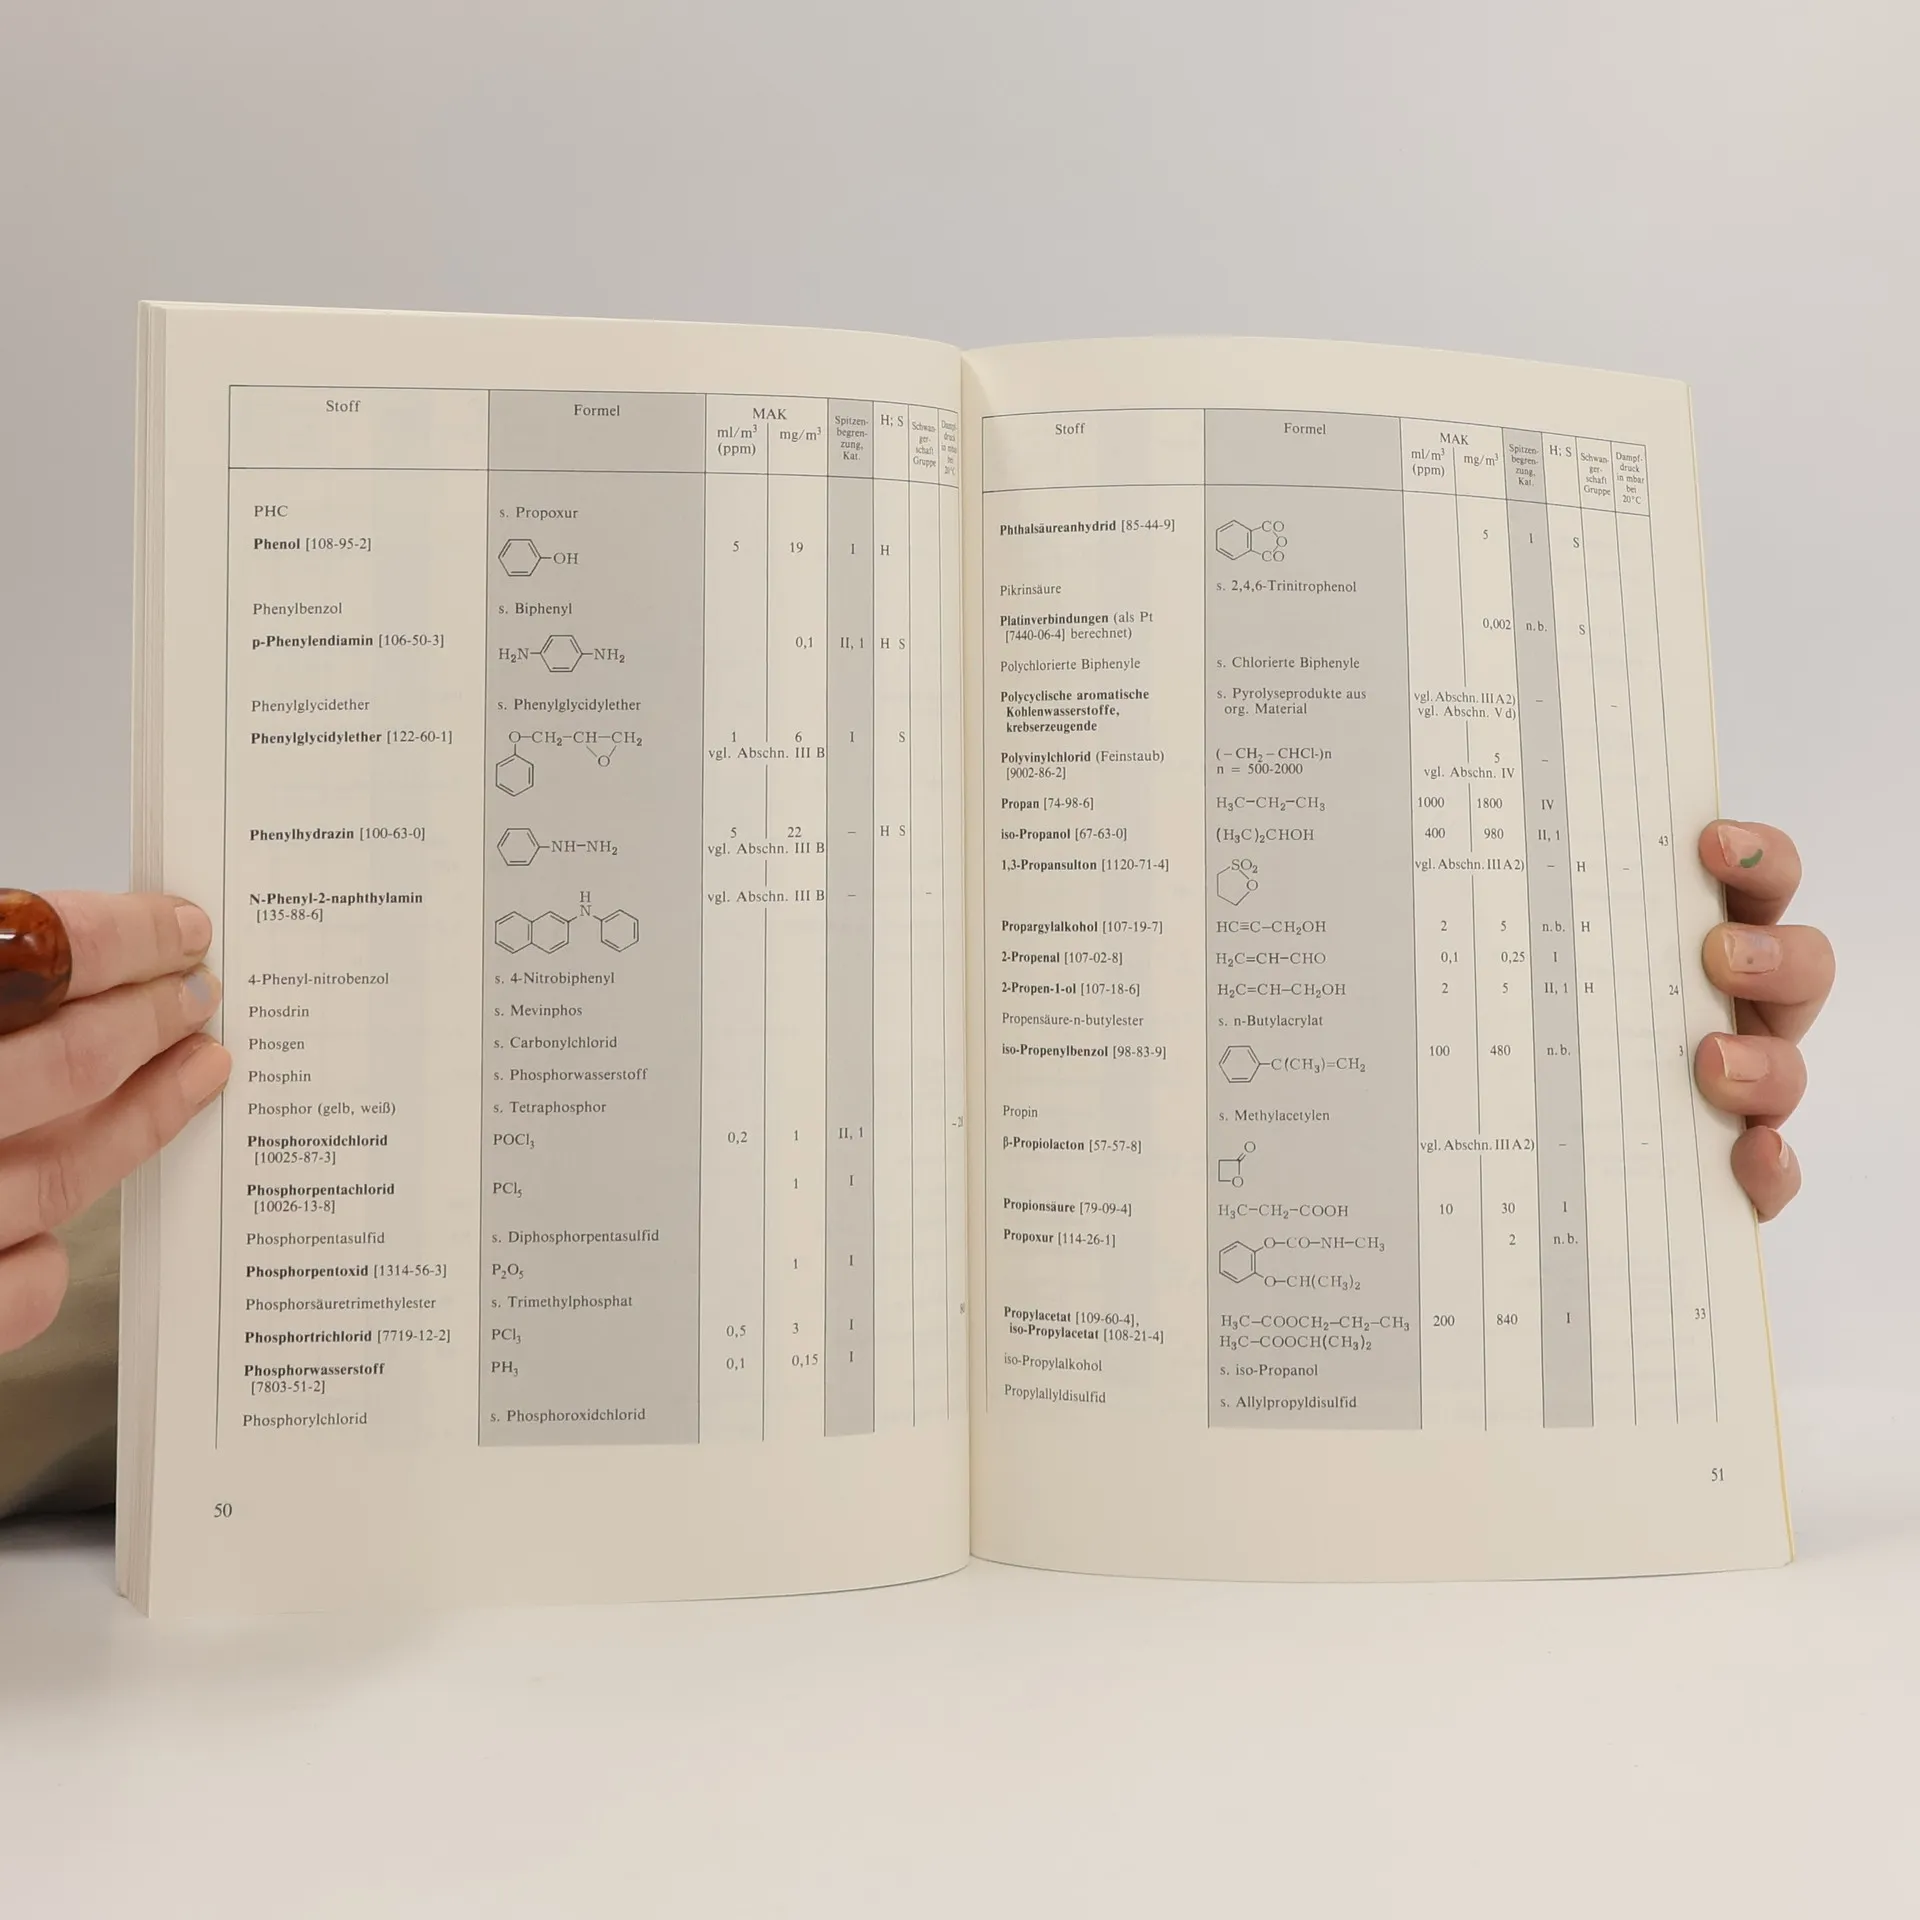 Stoff Formel MAK Spitzen- H; S Schwan- Dampf-
ml/m³ mg/m³ begren- ger- druck
(ppm) zung, schaft in mbar
Kat. Gruppe bei
20°C
PHC s. Propoxur
Phenol [108-95-2] OH 5 19 I H
Phenylbenzol s. Biphenyl
p-Phenylendiamin [106-50-3] H₂N NH₂ 0,1 II, 1 H S
Phenylglycidether s. Phenylglycidylether
Phenylglycidylether [122-60-1] O–CH₂–CH–CH₂ 1 6 I S
O vgl. Abschn. III B
Phenylhydrazin [100-63-0] NH–NH₂ 5 22 – H S
vgl. Abschn. III B
N-Phenyl-2-naphthylamin H vgl. Abschn. III B – –
[135-88-6] N
4-Phenyl-nitrobenzol s. 4-Nitrobiphenyl
Phosdrin s. Mevinphos
Phosgen s. Carbonylchlorid
Phosphin s. Phosphorwasserstoff
Phosphor (gelb, weiß) s. Tetraphosphor
Phosphoroxidchlorid POCl₃ 0,2 1 II, 1
[10025-87-3]
Phosphorpentachlorid PCl₅ 1 I
[10026-13-8]
Phosphorpentasulfid s. Diphosphorpentasulfid
Phosphorpentoxid [1314-56-3] P₂O₅ 1 I
Phosphorsäuretrimethylester s. Trimethylphosphat
Phosphortrichlorid [7719-12-2] PCl₃ 0,5 3 I
Phosphorwasserstoff PH₃ 0,1 0,15 I
[7803-51-2]
Phosphorylchlorid s. Phosphoroxidchlorid
50
Stoff Formel MAK Spitzen- H; S Schwan- Dampf-
ml/m³ mg/m³ begren- ger- druck
(ppm) zung, schaft in mbar
Kat. Gruppe bei
20°C
Phthalsäureanhydrid [85-44-9] CO O CO 5 I S
Pikrinsäure s. 2,4,6-Trinitrophenol
Platinverbindungen (als Pt 0,002 n.b. S
[7440-06-4] berechnet)
Polychlorierte Biphenyle s. Chlorierte Biphenyle
Polycyclische aromatische s. Pyrolyseprodukte aus vgl. Abschn. III A2) – –
Kohlenwasserstoffe, org. Material vgl. Abschn. V d)
krebserzeugende
Polyvinylchlorid (Feinstaub) (–CH₂–CHCl-)n 5 –
[9002-86-2] n = 500-2000 vgl. Abschn. IV
Propan [74-98-6] H₃C–CH₂–CH₃ 1000 1800 IV
iso-Propanol [67-63-0] (H₃C)₂CHOH 400 980 II, 1 43
1,3-Propansulton [1120-71-4] SO₂ O vgl. Abschn. III A2) – H –
Propargylalkohol [107-19-7] HC≡C–CH₂OH 2 5 n.b. H
2-Propenal [107-02-8] H₂C=CH–CHO 0,1 0,25 I
2-Propen-1-ol [107-18-6] H₂C=CH–CH₂OH 2 5 II, 1 H 24
Propensäure-n-butylester s. n-Butylacrylat
iso-Propenylbenzol [98-83-9] C(CH₃)=CH₂ 100 480 n.b. 3
Propin s. Methylacetylen
β-Propiolacton [57-57-8] O O vgl. Abschn. III A2) – –
Propionsäure [79-09-4] H₃C–CH₂–COOH 10 30 I
Propoxur [114-26-1] O–CO–NH–CH₃ 2 n.b.
O–CH(CH₃)₂
Propylacetat [109-60-4], H₃C–COOCH₂–CH₂–CH₃ 200 840 I 33
iso-Propylacetat [108-21-4] H₃C–COOCH(CH₃)₂
iso-Propylalkohol s. iso-Propanol
Propylallyldisulfid s. Allylpropyldisulfid
51